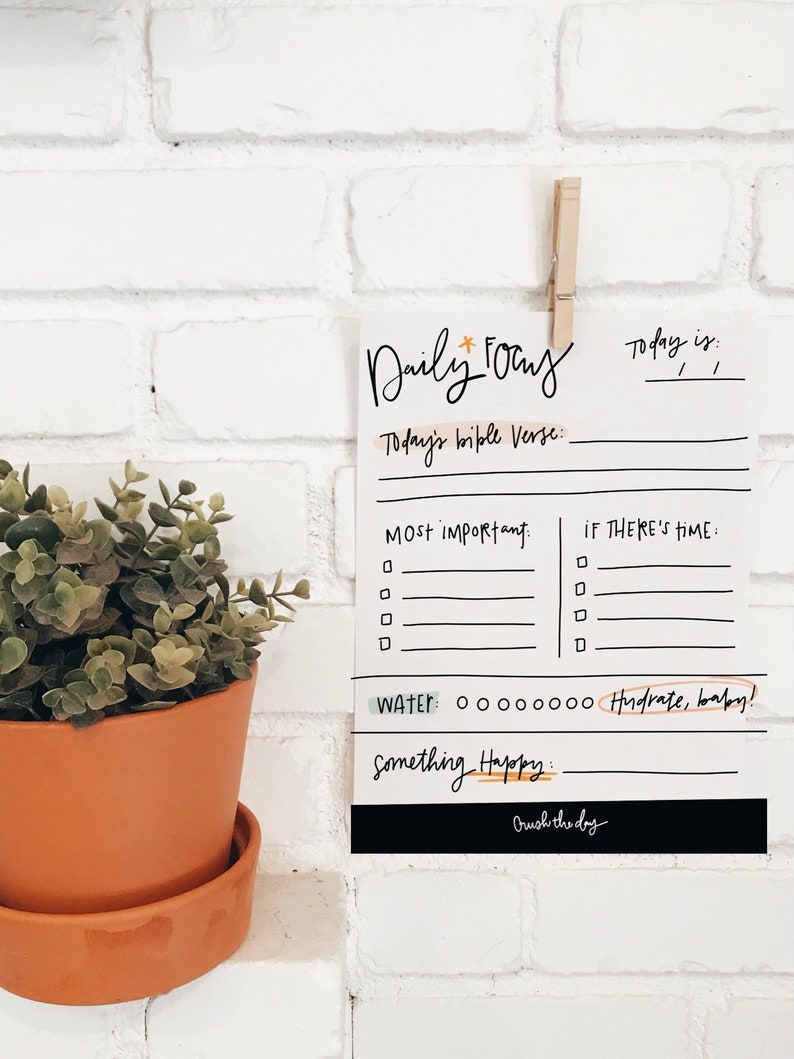 Daily Focus
Today is:
/ /
Today's bible Verse:
MOST IMPORTANT:
IF THERE'S TIME:
WATER:
Hydrate, baby!
Something Happy:
Crush the day